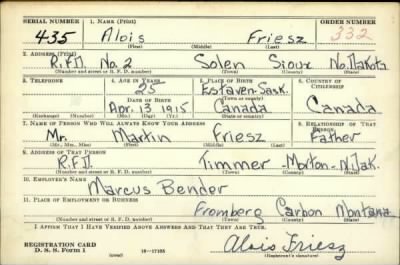 SERIAL NUMBER 1. NAME (Print) ORDER NUMBER
435 Alois Friesz 332
(First) (Middle) (Last)
2. ADDRESS (Print)
R.F.D. No. 2 Solen Sioux No. Dakota
(Number and street or R. F. D. number) (Town) (County) (State)
3. TELEPHONE 4. AGE IN YEARS 5. PLACE OF BIRTH 6. COUNTRY OF CITIZENSHIP
25 Estaven-Sask.
DATE OF BIRTH (Town or county)
Apr. 13 1915 Canada Canada
(Exchange) (Number) (Mo.) (Day) (Yr.) (State or country)
7. NAME OF PERSON WHO WILL ALWAYS KNOW YOUR ADDRESS 8. RELATIONSHIP OF THAT PERSON
Mr. Martin Friesz Father
(Mr., Mrs., Miss) (First) (Middle) (Last)
9. ADDRESS OF THAT PERSON
R.F.D. Timmer-Morton-N.Dak.
(Number and street or R. F. D. number) (Town) (County) (State)
10. EMPLOYER'S NAME
Marcus Bender
11. PLACE OF EMPLOYMENT OR BUSINESS
Fromberg Carbon Montana
(Number and street or R. F. D. number) (Town) (County) (State)
I AFFIRM THAT I HAVE VERIFIED ABOVE ANSWERS AND THAT THEY ARE TRUE.
REGISTRATION CARD
D. S. S. Form 1 (over) 16—17105 Alois Friesz
(Registrant's signature)